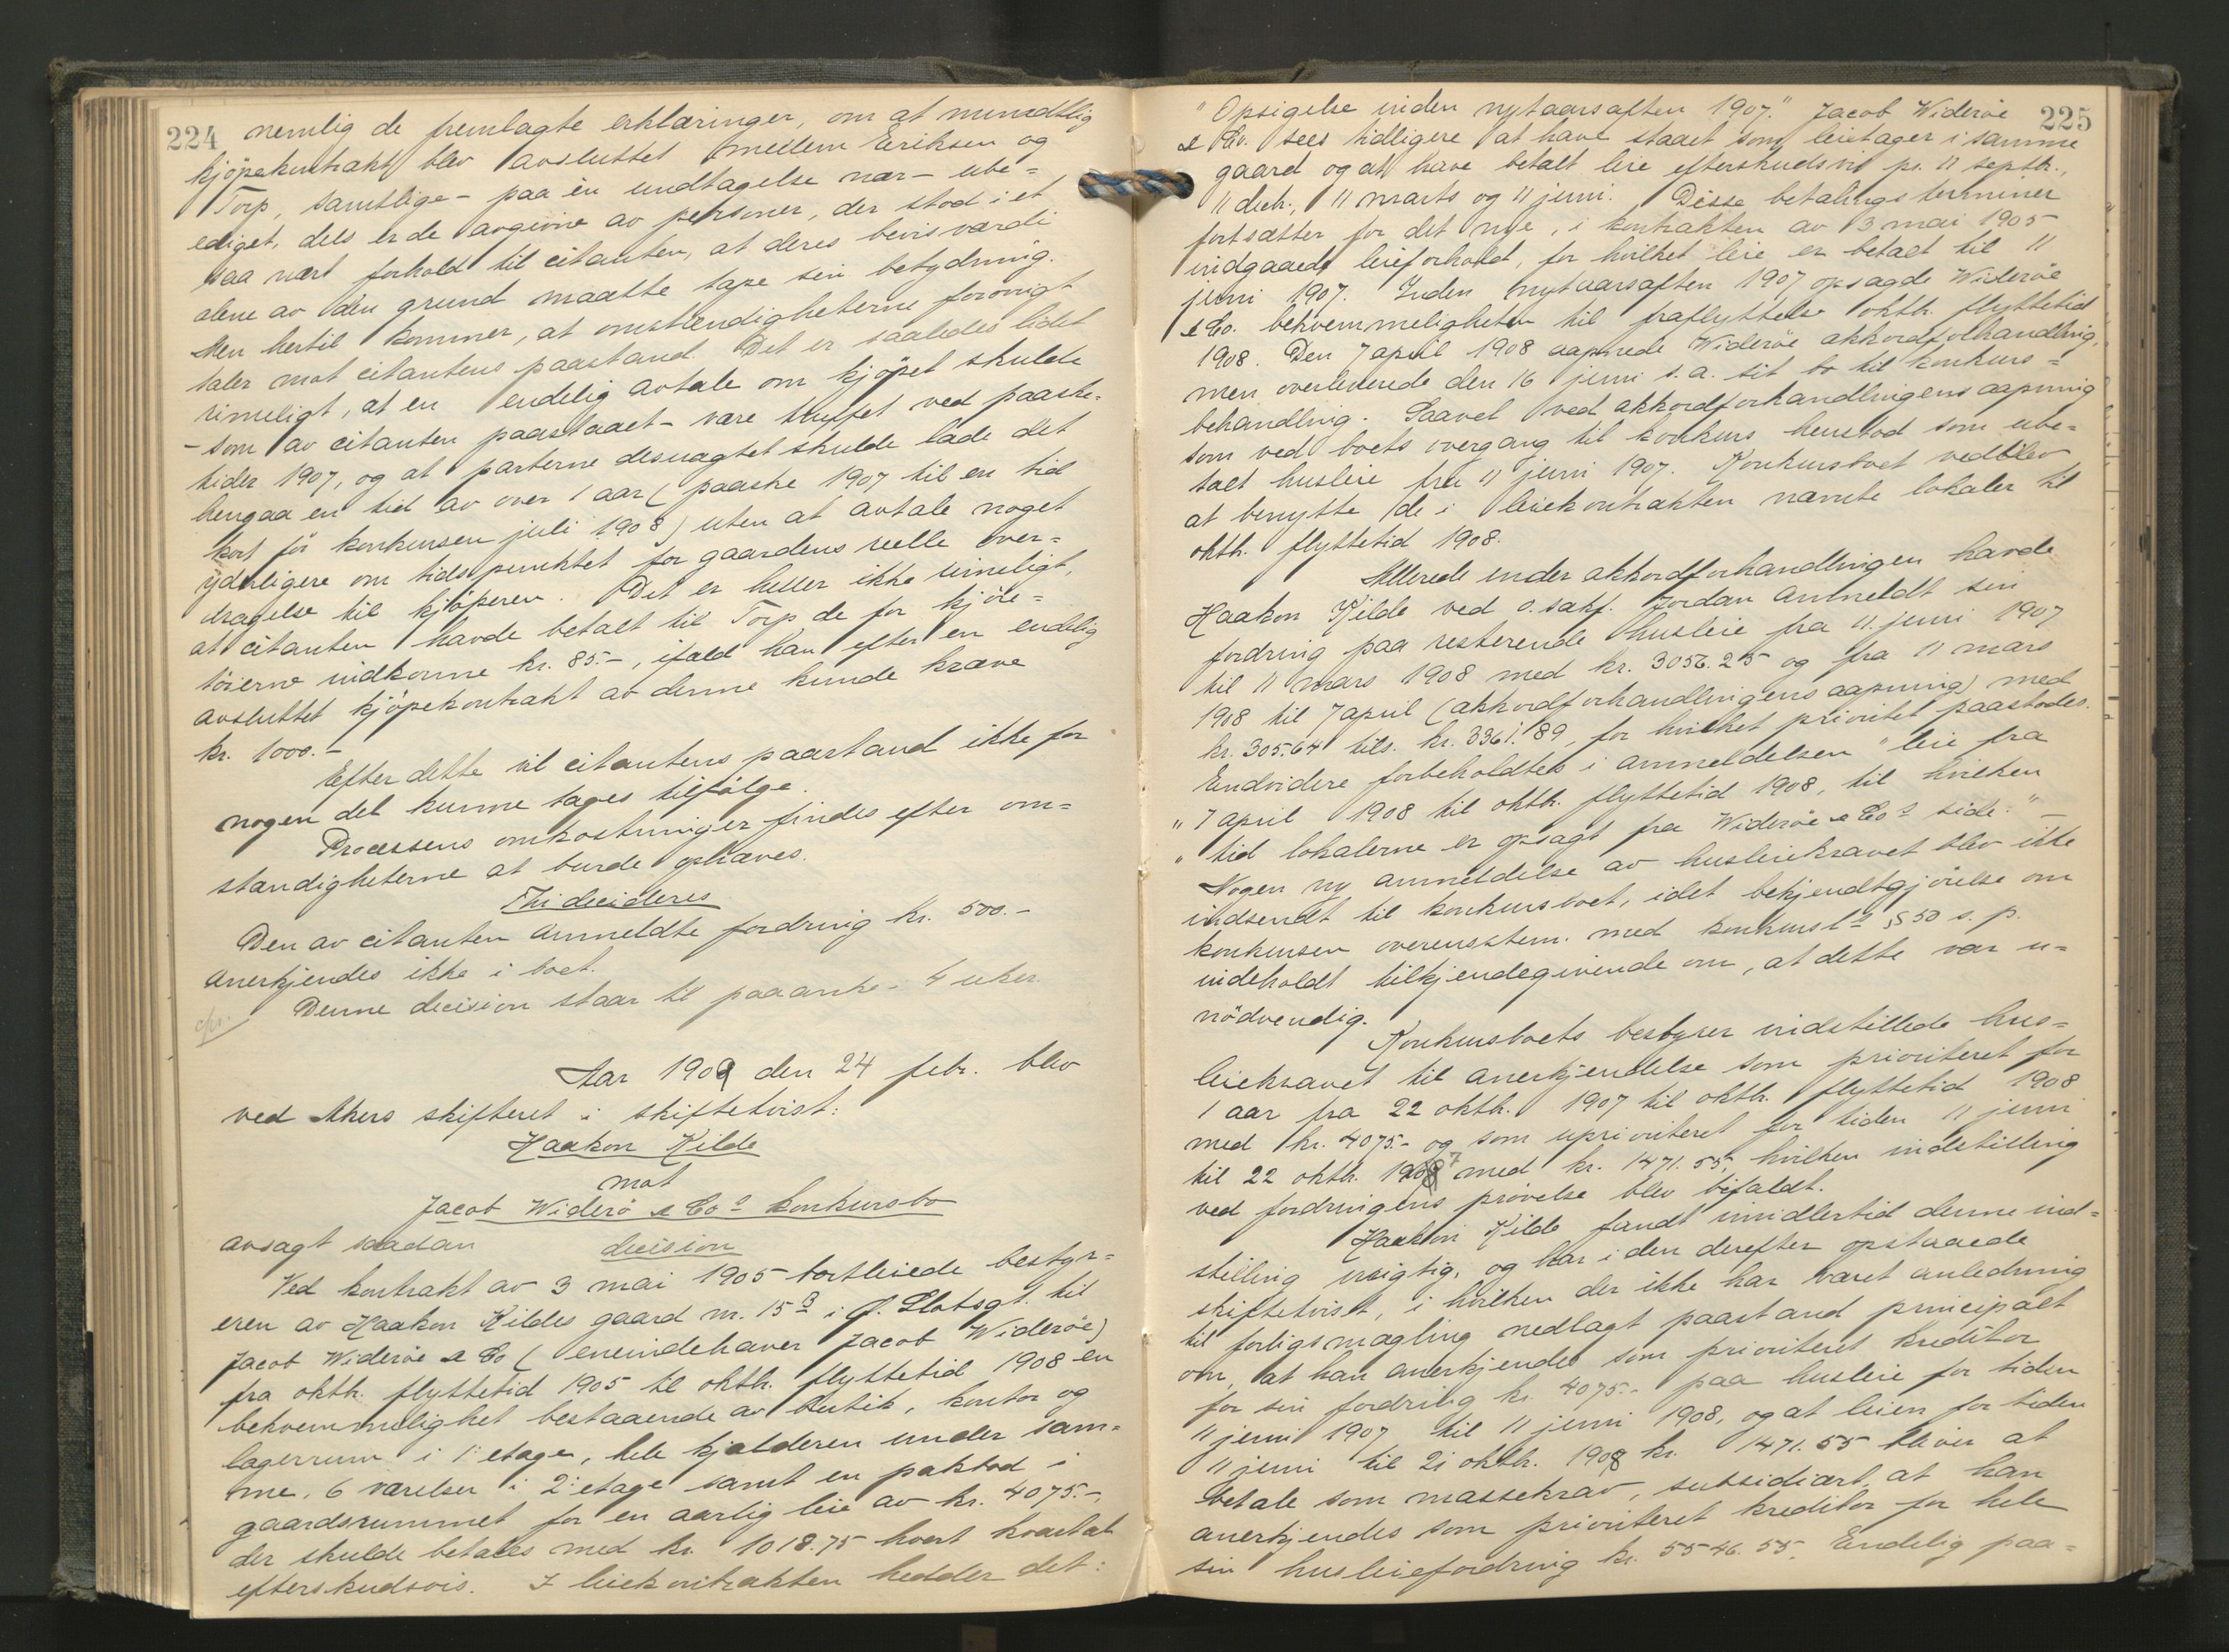 224 nemlig de fremlagte erklæringer, om at mundtlig
kjöpekontrakt blev avsluttet mellem Eriksen og
Torp, samtlige - paa én undtagelse nær - ube=
ediget, dels er de avgivne av personer, der stod i et
saa nært forhold til citanten, at deres bevisværdi
alene av den grund maatte tape sin betydning.
Men hertil kommer, at omstændigheterne forövrigt
taler mot citantens paastand. Det er saaledes lidet
rimeligt, at en endelig avtale om kjöpet skulde
- som av citanten paastaaet - være truffet ved paaske-
tider 1907, og at parterne desuagtet skulde lade det
hengaa en tid av over 1 aar (paaske 1907 til en tid
kort för konkursen juli 1908) uten at avtale noget
yderligere om tidspunktet for gaardens reelle over=
dragelse til kjöperen. Det er heller ikke rimeligt,
at citanten havde betalt til Torp de for kjöre=
töierne indkomne kr. 85.-, ifald han efter en endelig
avsluttet kjöpekontrakt av denne kunde kræve
kr. 1000.-
Efter dette vil citantens paastand ikke for
nogen del kunne tages tilfölge.
Processens omkostninger findes efter om=
stændigheterne at burde ophæves.
Thi decideres
Den av citanten anmeldte fordring kr. 500.-
anerkjendes ikke i boet.
Denne decision staar til paaanke - 4 uker.
Aar 1909 den 24 febr. blev
ved Akers skifteret i skiftetvist:
Haakon Kilde
mot
Jacob Widerö & Co s konkursbo
avsagt saadan decision
Ved kontrakt av 3 mai 1905 bortleiede bestyr=
eren av Haakon Kildes gaard nr. 15 B i Ö. Slotsgt. til
Jacob Wideröe & Co (eneindehaver Jacob Wideröe)
fra oktb. flyttetid 1905 til oktb. flyttetid 1908 en
bekvemmelighet bestaaende av butik, kontor og
lagerrum i 1 etage, hele kjælderen under sam=
me, 6 værelser i 2 etage samt en pakbod i
gaardsrummet for en aarlig leie av kr. 4075.-,
der skulde betales med kr. 1018.75 hvert kvartal
efterskudsvis. I leiekontrakten hedder det:
225
"Opsigelse inden nytaarsaften 1907." Jacob Wideröe
& Co. sees tidligere at have staaet som leietager i samme
gaard og at have betalt leie efterskudsvis pr. 11 septb.,
11 decb., 11 marts og 11 juni. Disse betalingsterminer
fortsætter for det nye, i kontrakten av 3 mai 1905
indgaaede leieforhold, for hvilket leie er betalt til 11
juni 1907. Inden nytaarsaften 1907 opsagde Wideröe
& Co. bekvemmeligheten til fraflyttelse oktb. flyttetid
1908. Den 7 april 1908 aapnede Wideröe akkordforhandling,
men overleverede den 16 juni s.a. sit bo til konkurs=
behandling. Saavel ved akkordforhandlingens aapning
som ved boets overgang til konkurs henstod som ube=
talt husleie fra 11 juni 1907. Konkursboet vedblev
at benytte de i leiekontrakten nævnte lokaler til
oktb. flyttetid 1908.
Allerede under akkordforhandlingen havde
Haakon Kilde ved o.sakf. Jordan anmeldt sin
fordring paa resterende husleie fra 11. juni 1907
til 11 mars 1908 med kr. 3056.25 og fra 11 mars
1908 til 7 april (akkordforhandlingens aapning) med
kr. 305.64 tils. kr. 3361.89, for hvilket prioritet paastodes.
Endvidere forbeholdtes i anmeldelsen "leie fra
"7 april 1908 til oktb. flyttetid 1908, til hvilken
"tid lokalerne er opsagt fra Wideröe & Co s side." -
Nogen ny anmeldelse av husleiekravet blev ikke
indsendt til konkursboet, idet bekjendtgjörelse om
konkursen overensstem. med konkursl s § 50 s. p.
indeholdt tilkjendegivende om, at dette var u=
nödvendig.
Konkursboets bestyrer indstillede hus=
leiekravet til anerkjendelse som prioriteret for
1 aar fra 22 oktb. 1907 til oktb. flyttetid 1908
med kr. 4075.- og som uprioriteret for tiden 11 juni
til 22 oktb. 1907 med kr. 1471.55, hvilken indstilling
ved fordringens prövelse blev bifaldt.
Haakon Kilde fandt imidlertid denne ind=
stilling urigtig, og har i den derefter opstaaede
skiftetvist, i hvilken der ikke har været anledning
til forligsmægling nedlagt paastand principalt
om, at han anerkjendes som prioriteret kreditor
for sin fordring kr. 4075.- paa husleie for tiden
11 juni 1907 til 11 juni 1908, og at leien for tiden
11 juni til 21 oktb. 1908 kr. 1471.55 bliver at
betale som massekrav, subsidiært, at han
anerkjendes som prioriteret kreditor for hele
sin husleiefordring kr. 5546.55. Endelig paa=